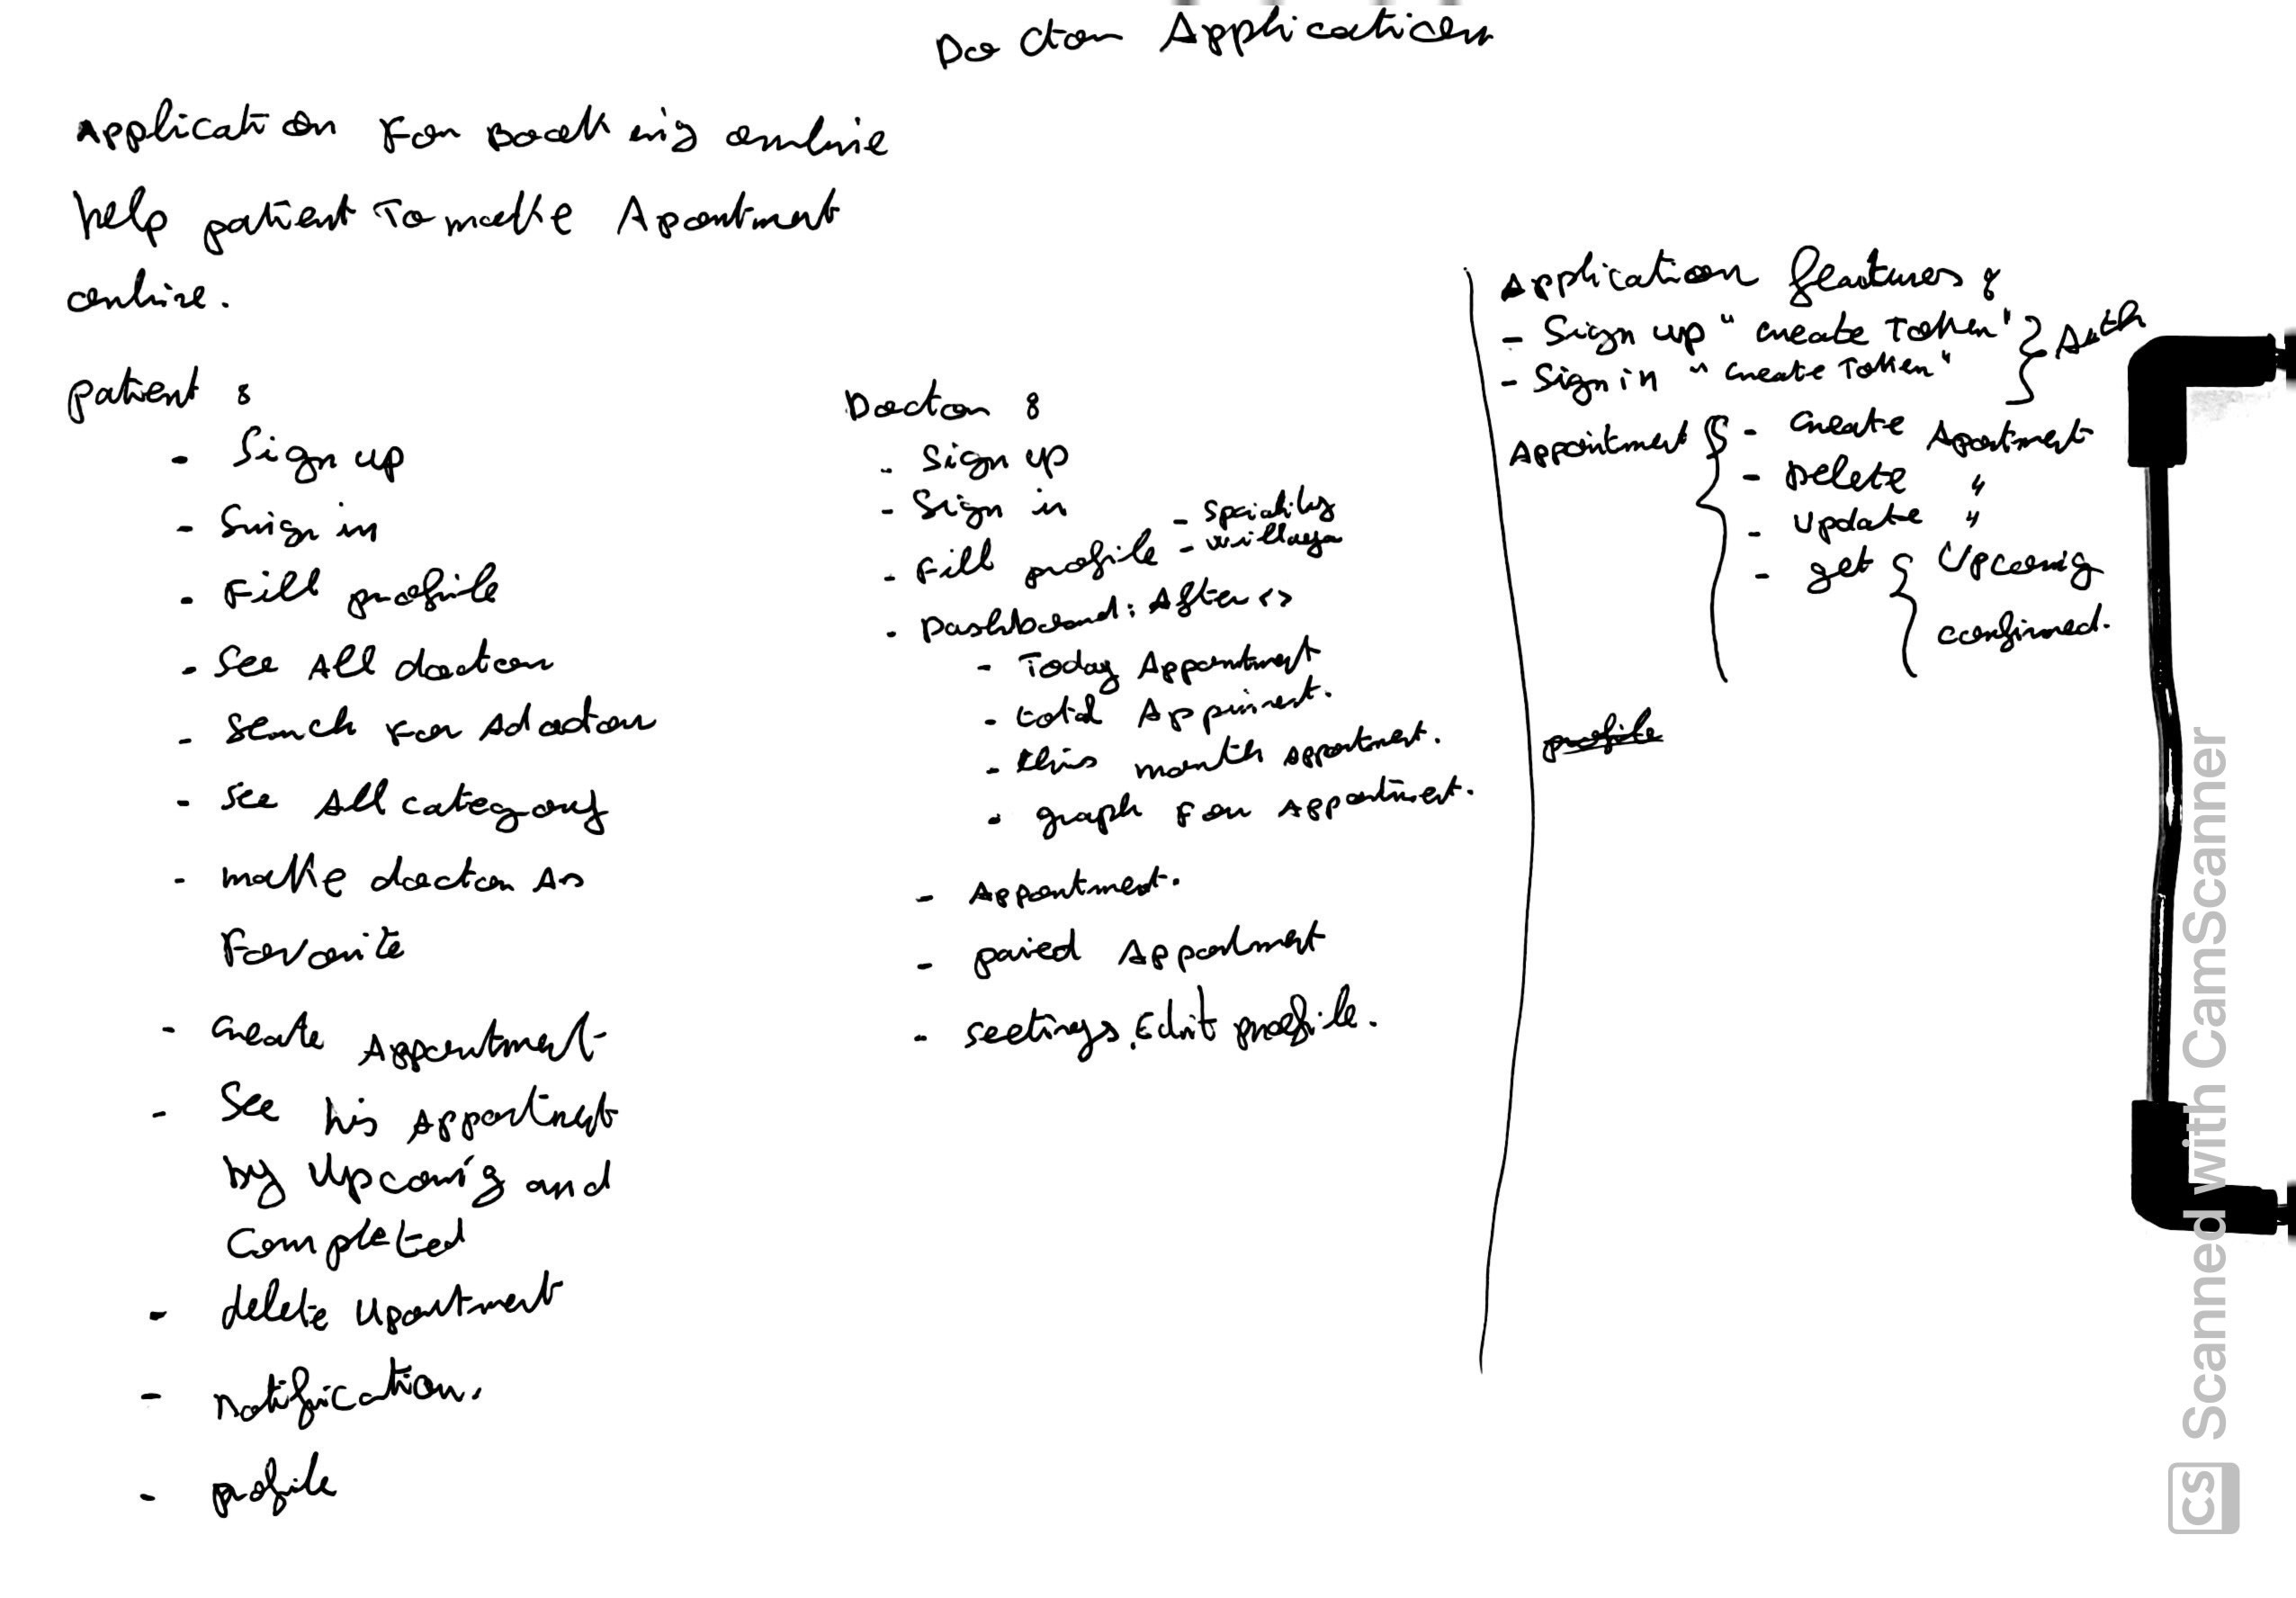 Doctor Application
Application For Booking online
help patient To make Apointment
online.
patient :
- Sign up
- Sign in
- Fill profile
- See All doctor
- Serch For A doctor
- See All category
- make doctor As
Favorite
- Create Appointment
- See his Appointment
by Upcoming and
Completed
- delete Upointment
- Notification.
- profile
Doctor :
- Sign up
- Sign in
- Fill profile - Speciality
- willaya
- Dashboard : After <>
- Today Appointment
- total Appointment.
- this month Appointment.
- graph For Appointment.
- Appointment.
- Appointment
- Seetings. Edit profile.
Application features :
- Sign up " Create Token" } Auth
- Sign in " Create Token"
Appointment { - Create Apointment
- Delete "
- Update "
- get { Upcoming
confirmed.
profile
CS Scanned with CamScanner